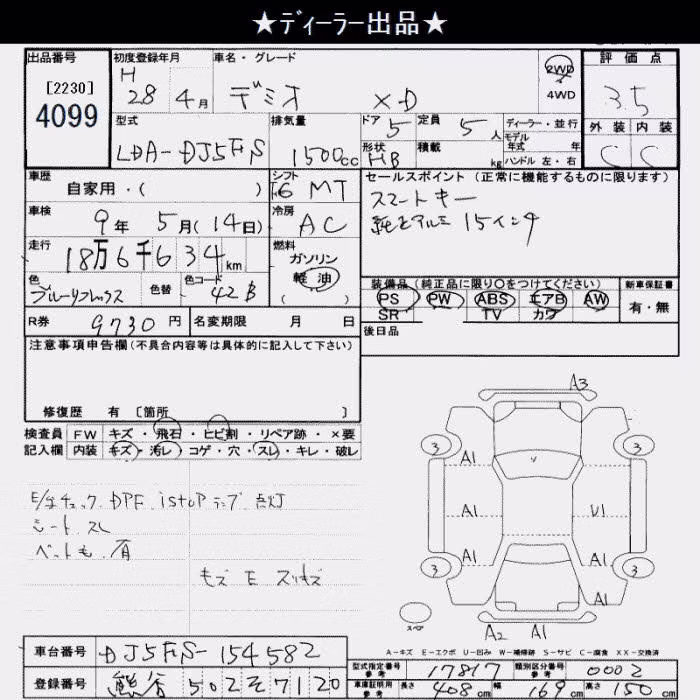 ★ディーラー出品★
出品番号 初度登録年月 車名・グレード 2WD 評価点
[2230] H 28 4月 デミオ XD 4WD 3.5
4099
型式 排気量 ドア 定員 ディーラー・並行 外装 内装
LDA-DJ5FS 1500cc 5 5人 モデル年式 年 C C
形状 HB 積載 kg ハンドル 左・右
車歴 シフト セールスポイント(正常に機能するものに限ります)
自家用・( ) F6 MT スマートキー
車検 冷房 純正アルミ 15インチ
9年 5月(14日) AC
走行 燃料
18万6千634km ガソリン
軽油
色 色替 色コード ( ) 装備品(純正品に限り〇をつけてください) 新車保証書
ブルーリフレックス 42B PS PW ABS エアB AW 有・無
SR TV カワ
R券 9730円 名変期限 月 日 後日品
注意事項申告欄(不具合内容等は具体的に記入して下さい)
修復歴 有 〔箇所 〕
検査員 FW キズ・飛石・ヒビ割・リペア跡・×要
記入欄 内装 キズ・汚レ・コゲ・穴・スレ・キレ・破レ
A3
3 3
A1 A1
A1 U1
A1 A1
3 A1 A1 3
スペア
A2 A1
E/gチェック.DPF.istopランプ 点灯
シート スレ
ペット毛.有
キズ E スリキズ
A-キズ E-エクボ U-凹み W-補修跡 S-サビ C-腐食 XX-交換済
車台番号 DJ5FS-154582
登録番号 熊谷 502 そ 7120
型式指定番号 参考 17817 類別区分番号 参考 0002
車庫証明用 参考 長さ 408cm 幅 169cm 高さ 150cm